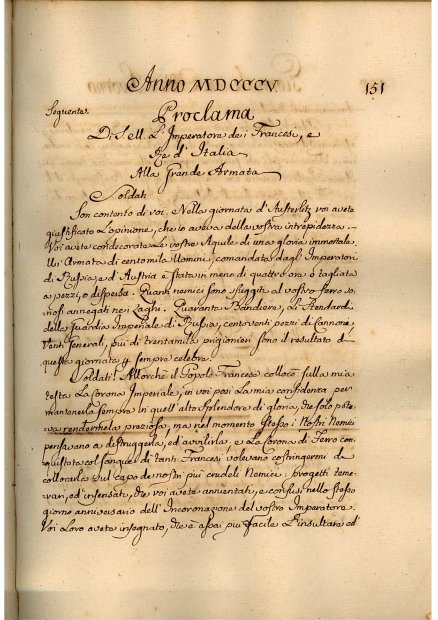 Anno MDCCCV.
151
Seguente
Proclama
Di S. M. L'Imperatore de' i Francesi, e
Re d'Italia
Alla Grande Armata
Soldati
Son contento di voi. Nella giornata d'Austerlitz voi avete
giustificato l'opinione, che io aveva della vostra intrepidezza.
Voi avete condecorate le vostre Aquile di una gloria immortale.
Un'Armata di centomila Uomini, comandata dagl'Imperatori
di Russia, e d'Austria è stata in meno di quattr'ore o tagliata
a pezzi, o dispersa. Quanti nemici sono sfuggiti al vostro ferro so-
nosi annegati nei Laghi. Quaranta Bandiere, li Stendardi
della Guardia Imperiale di Russia, centoventi pezzi di Cannone,
Venti Generali, più di trentamila prigionieri sono il resultato di
questa giornata p. sempre celebre.
Soldati! Allorchè il Popolo Francese collocò sulla mia
testa la Corona Imperiale, in voi posi la mia confidenza per
mantenerla sempre in quell'alto splendore di gloria, che solo pote-
va rendermela preziosa, ma nel momento stesso i Nostri Nemici
pensavano a distruggerla, ed avvilirla, e la Corona di Ferro con-
quistata col sangue di tanti Francesi volevano costringermi di
collocarla sul capo de nostri più crudeli Nemici: progetti teme-
rari, ed insensati, che voi avete annientati, e confusi nello stesso
giorno anniversario dell'Incoronazione del vostro Imperatore.
Voi Loro avete insegnato, che è assai più facile L'insultare ed